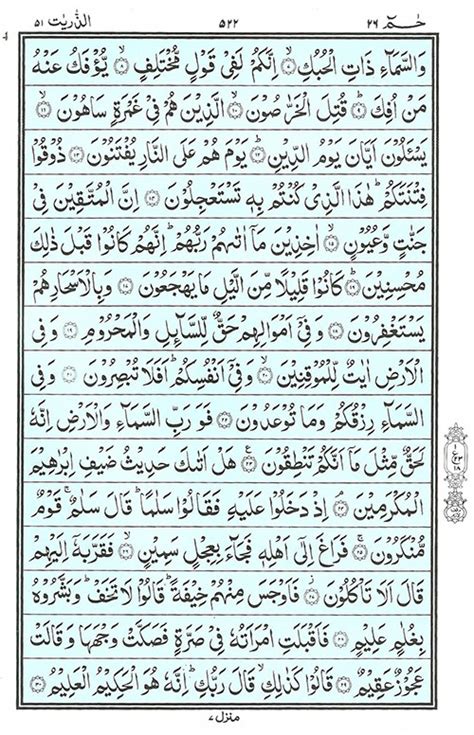 حٰمٓ ٢٦ ٥٢٢ الذّٰرِیٰت ٥١
وَالسَّمَآءِ ذَاتِ الْحُبُكِ ۙ﴿٧﴾ اِنَّكُمْ لَفِیْ قَوْلٍ مُّخْتَلِفٍ ۙ﴿٨﴾ یُّؤْفَكُ عَنْهُ
مَنْ اُفِكَ ؕ﴿٩﴾ قُتِلَ الْخَرّٰصُوْنَ ۙ﴿١٠﴾ الَّذِیْنَ هُمْ فِیْ غَمْرَةٍ سَاهُوْنَ ۙ﴿١١﴾
یَسْـَٔلُوْنَ اَیَّانَ یَوْمُ الدِّیْنِ ؕ﴿١٢﴾ یَوْمَ هُمْ عَلَی النَّارِ یُفْتَنُوْنَ ﴿١٣﴾ ذُوْقُوْا
فِتْنَتَكُمْ ؕ هٰذَا الَّذِیْ كُنْتُمْ بِهٖ تَسْتَعْجِلُوْنَ ﴿١٤﴾ اِنَّ الْمُتَّقِیْنَ فِیْ
جَنّٰتٍ وَّعُیُوْنٍ ۙ﴿١٥﴾ اٰخِذِیْنَ مَاۤ اٰتٰىهُمْ رَبُّهُمْ ؕ اِنَّهُمْ كَانُوْا قَبْلَ ذٰلِكَ
مُحْسِنِیْنَ ؕ﴿١٦﴾ كَانُوْا قَلِیْلًا مِّنَ الَّیْلِ مَا یَهْجَعُوْنَ ﴿١٧﴾ وَبِالْاَسْحَارِ هُمْ
یَسْتَغْفِرُوْنَ ﴿١٨﴾ وَفِیْۤ اَمْوَالِهِمْ حَقٌّ لِّلسَّآئِلِ وَالْمَحْرُوْمِ ﴿١٩﴾ وَفِی
الْاَرْضِ اٰیٰتٌ لِّلْمُوْقِنِیْنَ ۙ﴿٢٠﴾ وَفِیْۤ اَنْفُسِكُمْ ؕ اَفَلَا تُبْصِرُوْنَ ﴿٢١﴾ وَفِی
السَّمَآءِ رِزْقُكُمْ وَمَا تُوْعَدُوْنَ ﴿٢٢﴾ فَوَرَبِّ السَّمَآءِ وَالْاَرْضِ اِنَّهٗ
لَحَقٌّ مِّثْلَ مَاۤ اَنَّكُمْ تَنْطِقُوْنَ ﴿٢٣﴾ هَلْ اَتٰىكَ حَدِیْثُ ضَیْفِ اِبْرٰهِیْمَ
الْمُكْرَمِیْنَ ﴿٢٤﴾ اِذْ دَخَلُوْا عَلَیْهِ فَقَالُوْا سَلٰمًا ؕ قَالَ سَلٰمٌ ۚ قَوْمٌ
مُّنْكَرُوْنَ ﴿٢٥﴾ فَرَاغَ اِلٰۤی اَهْلِهٖ فَجَآءَ بِعِجْلٍ سَمِیْنٍ ۙ﴿٢٦﴾ فَقَرَّبَهٗۤ اِلَیْهِمْ
قَالَ اَلَا تَاْكُلُوْنَ ﴿٢٧﴾ فَاَوْجَسَ مِنْهُمْ خِیْفَةً ؕ قَالُوْا لَا تَخَفْ ؕ وَبَشَّرُوْهُ
بِغُلٰمٍ عَلِیْمٍ ﴿٢٨﴾ فَاَقْبَلَتِ امْرَاَتُهٗ فِیْ صَرَّةٍ فَصَكَّتْ وَجْهَهَا وَقَالَتْ
عَجُوْزٌ عَقِیْمٌ ﴿٢٩﴾ قَالُوْا كَذٰلِكِ ۙ قَالَ رَبُّكِ ؕ اِنَّهٗ هُوَ الْحَكِیْمُ الْعَلِیْمُ ﴿٣٠﴾
منزل ٧